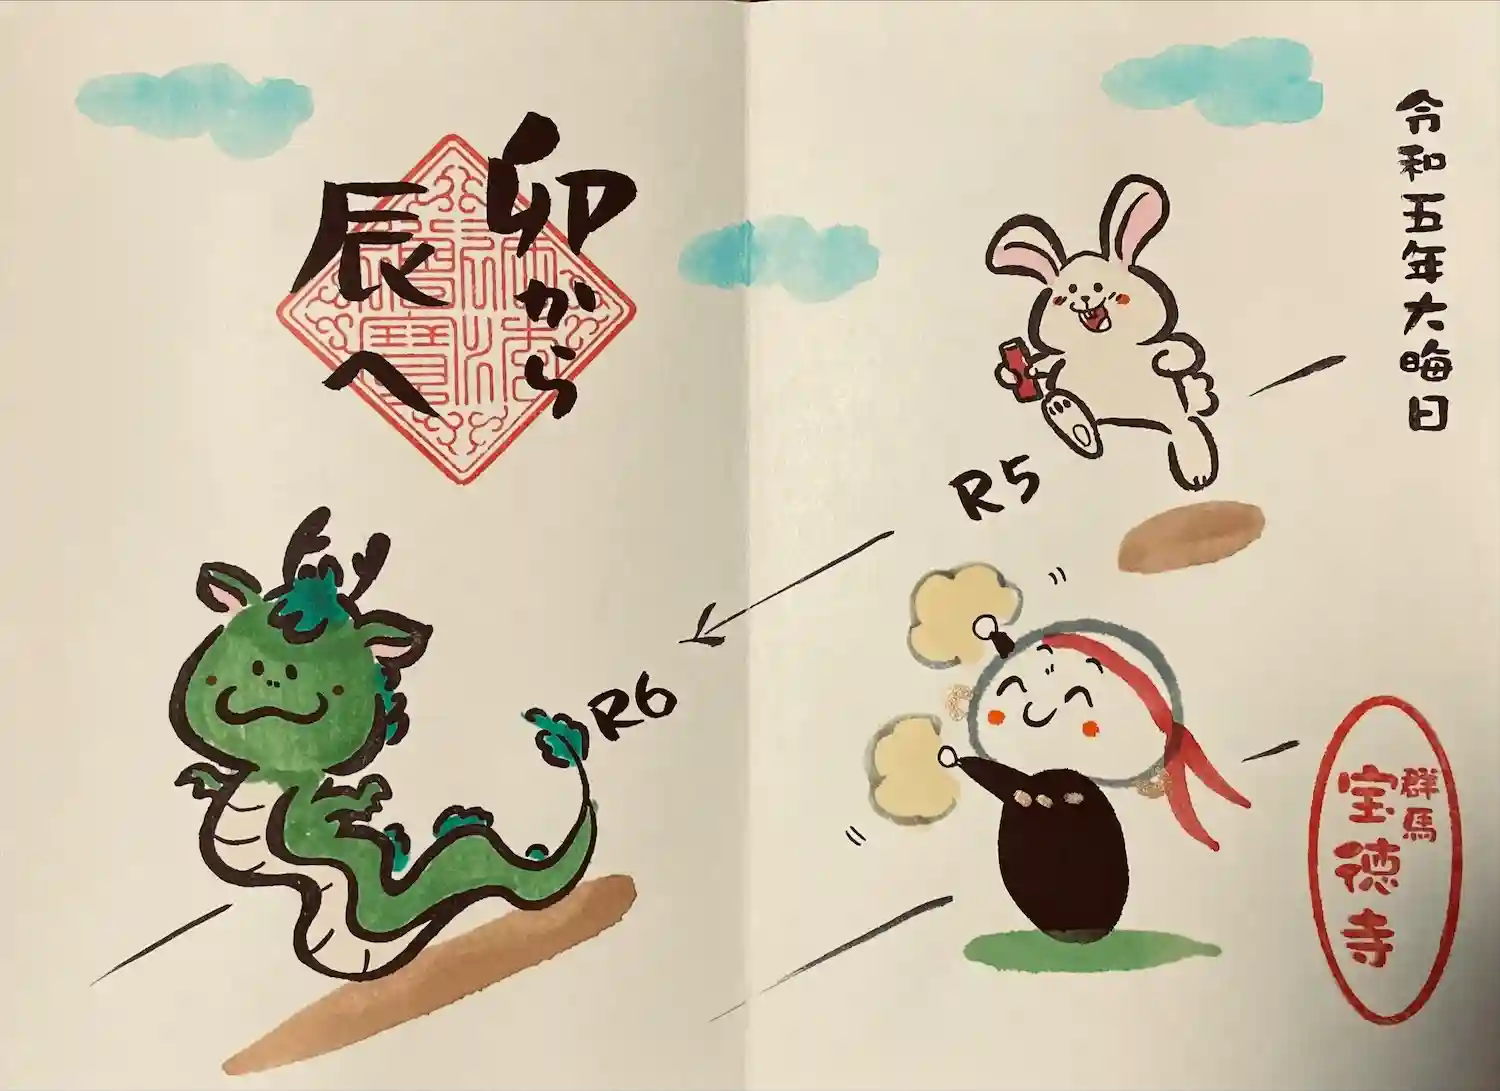 令和五年大晦日
R5
群馬
宝徳寺
卯から
辰へ
R6